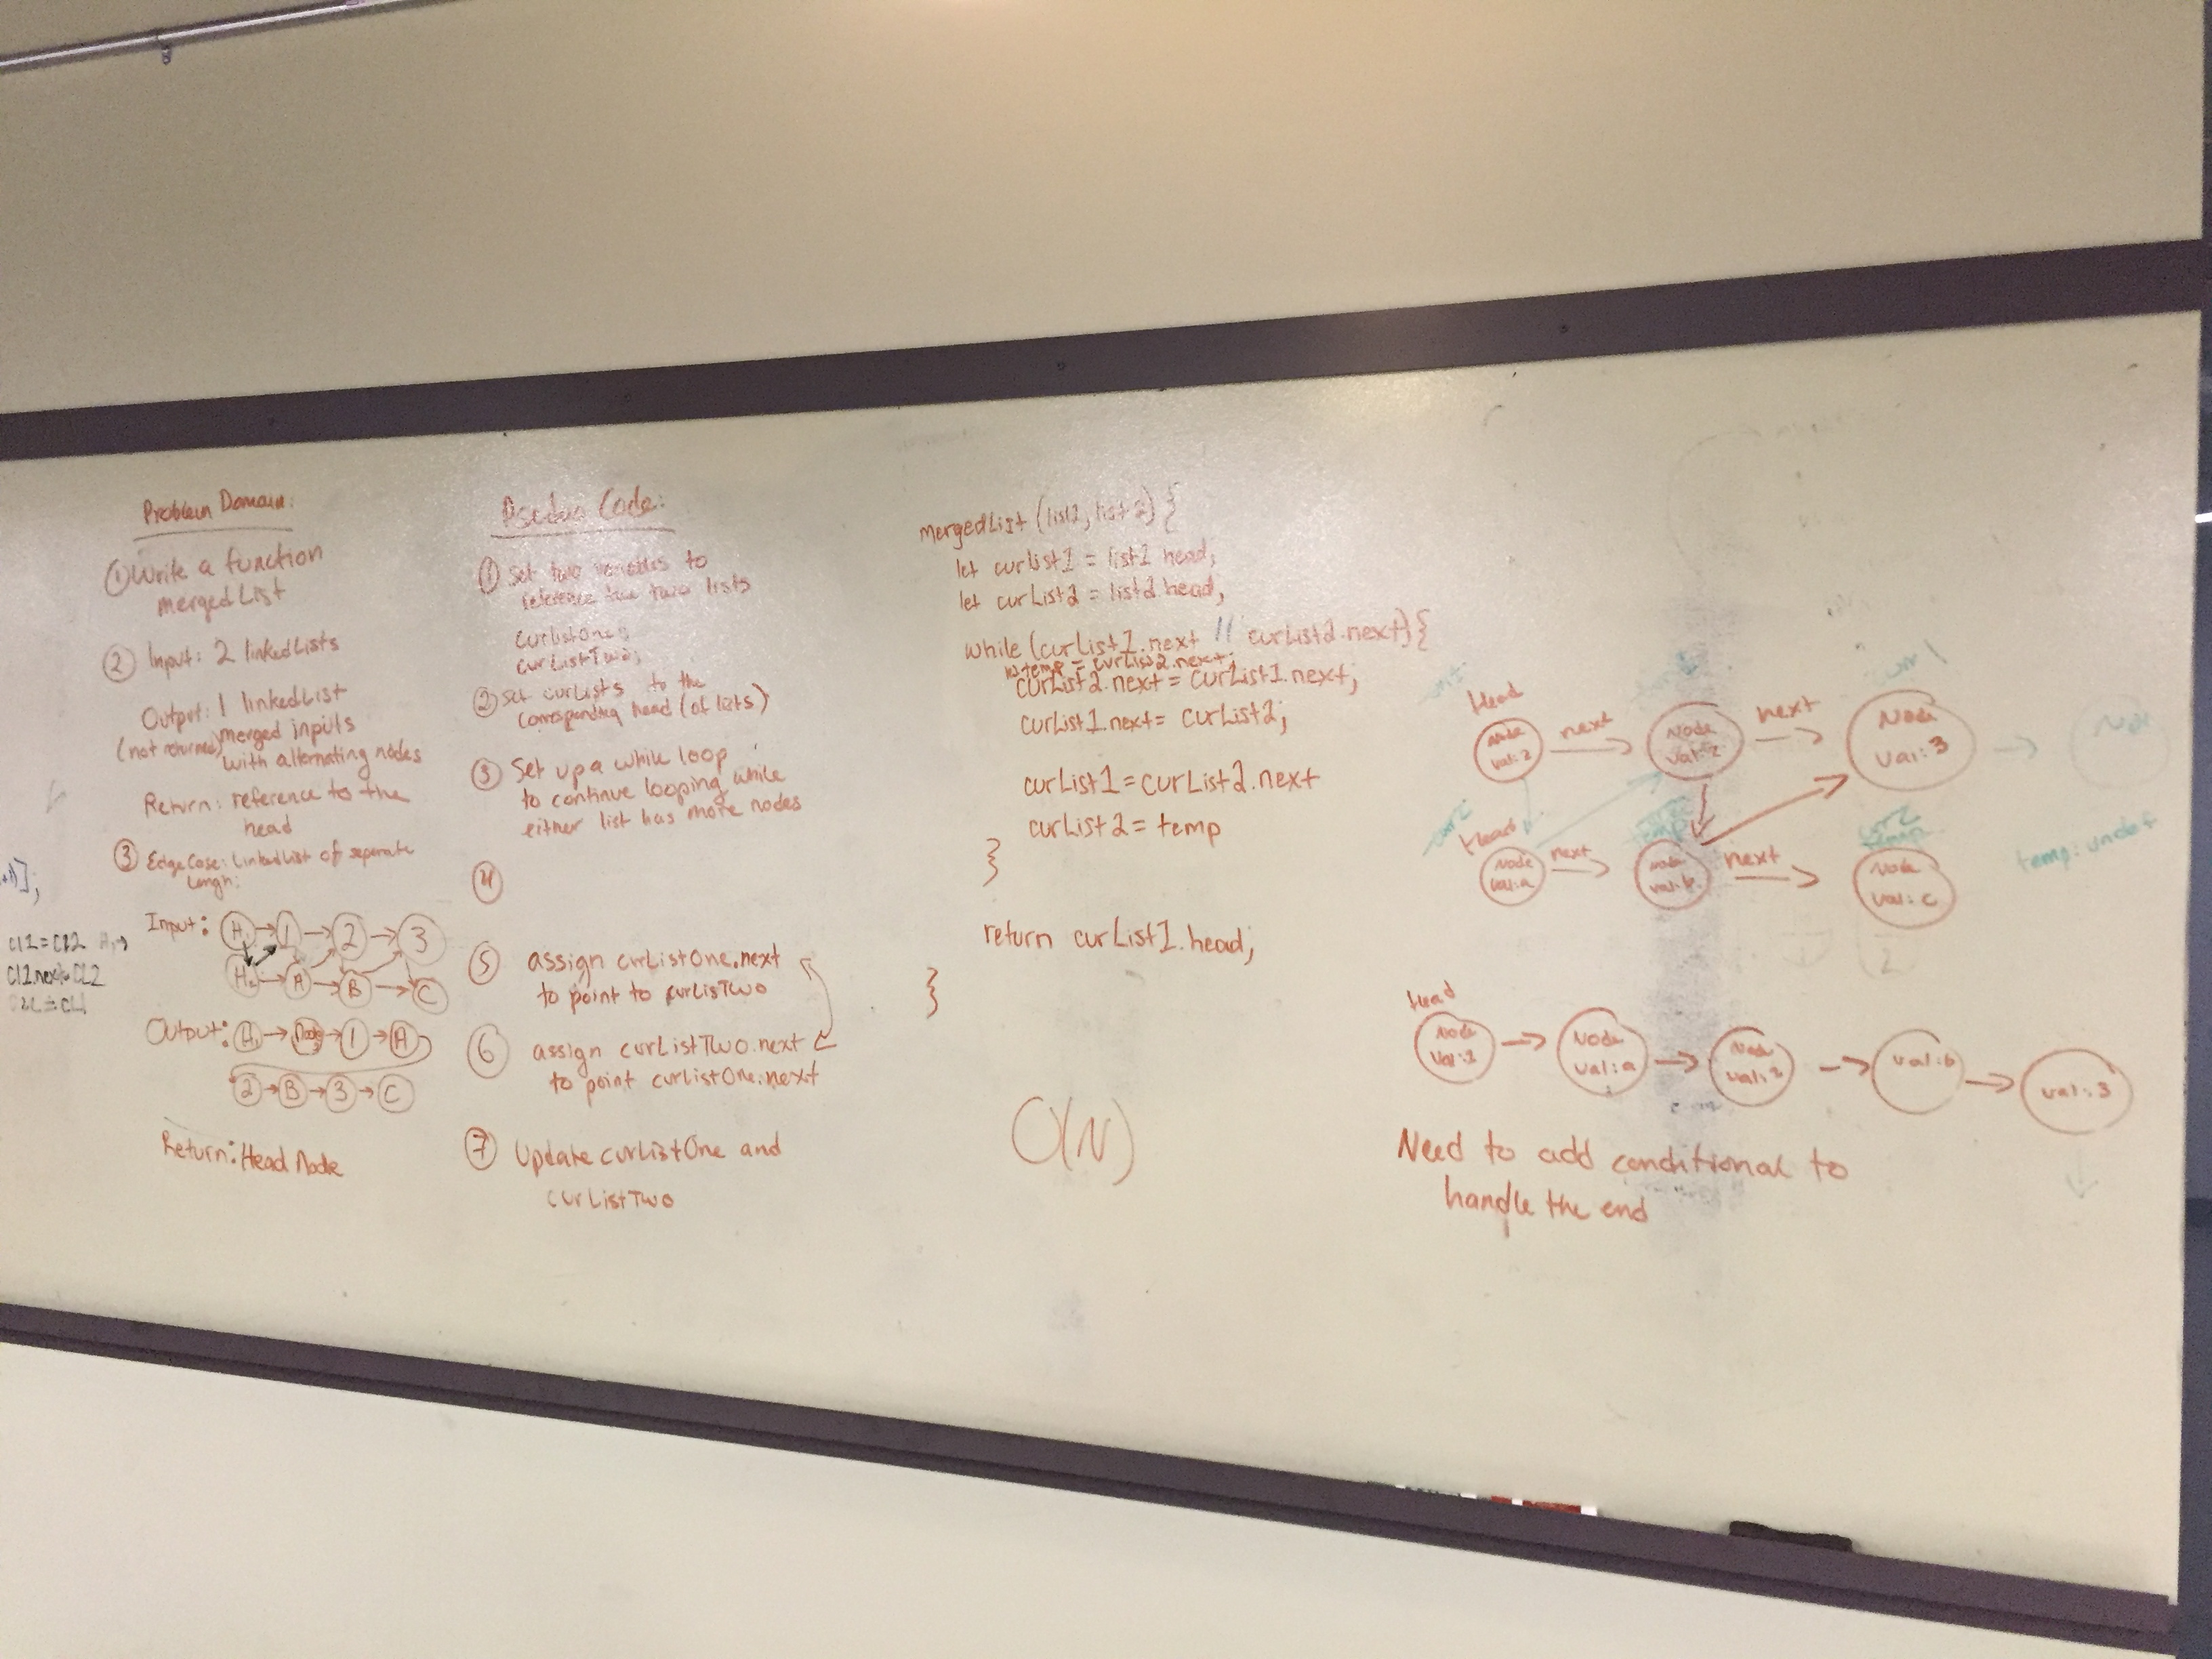 Problem Domain:
① Write a function
mergedList
② Input: 2 linkedLists
Output: 1 linkedList
(not returned) merged inputs
with alternating nodes
Return: reference to the
head
③ Edge Case: LinkedList of seperate
Lengh:
Input: H1 → 1 → 2 → 3
H2 → A → B → C
Output: H1 → → 1 → A
2 → B → 3 → C
Return: Head Node
+1)];
Cl1 = CL2
Cl1.next = CL2
Pseduo Code:
① Set two variables to
reference two lists
curListOne;
curListTwo;
② Set curLists to the
corresponding head (of lists)
③ Set up a while loop
to continue looping while
either list has more nodes
④
⑤ assign curListOne.next
to point to curLisTwo
⑥ assign curListTwo.next
to point curListOne.next
⑦ Update curListOne and
curListTwo
mergedList (list1, list2) {
let curList1 = list1.head;
let curList2 = list2.head;
while (curList1.next || curList2.next) {
temp = curList2.next;
curList2.next = curList1.next;
curList1.next = curList2;
curList1 = curList2.next
curList2 = temp
}
return curList1.head;
}
O(N)
cur1
Head
Node
next
Node
val: 2
next
Node
val: 3
cur2
Head
Node
val: a
next
Node
val: b
next
cur2
temp
Node
val: c
temp: undef
Head
Node
val: 1
→
Node
val: a
→
Node
val: 2
→
val: b
→
val: 3
Need to add conditional to
handle the end